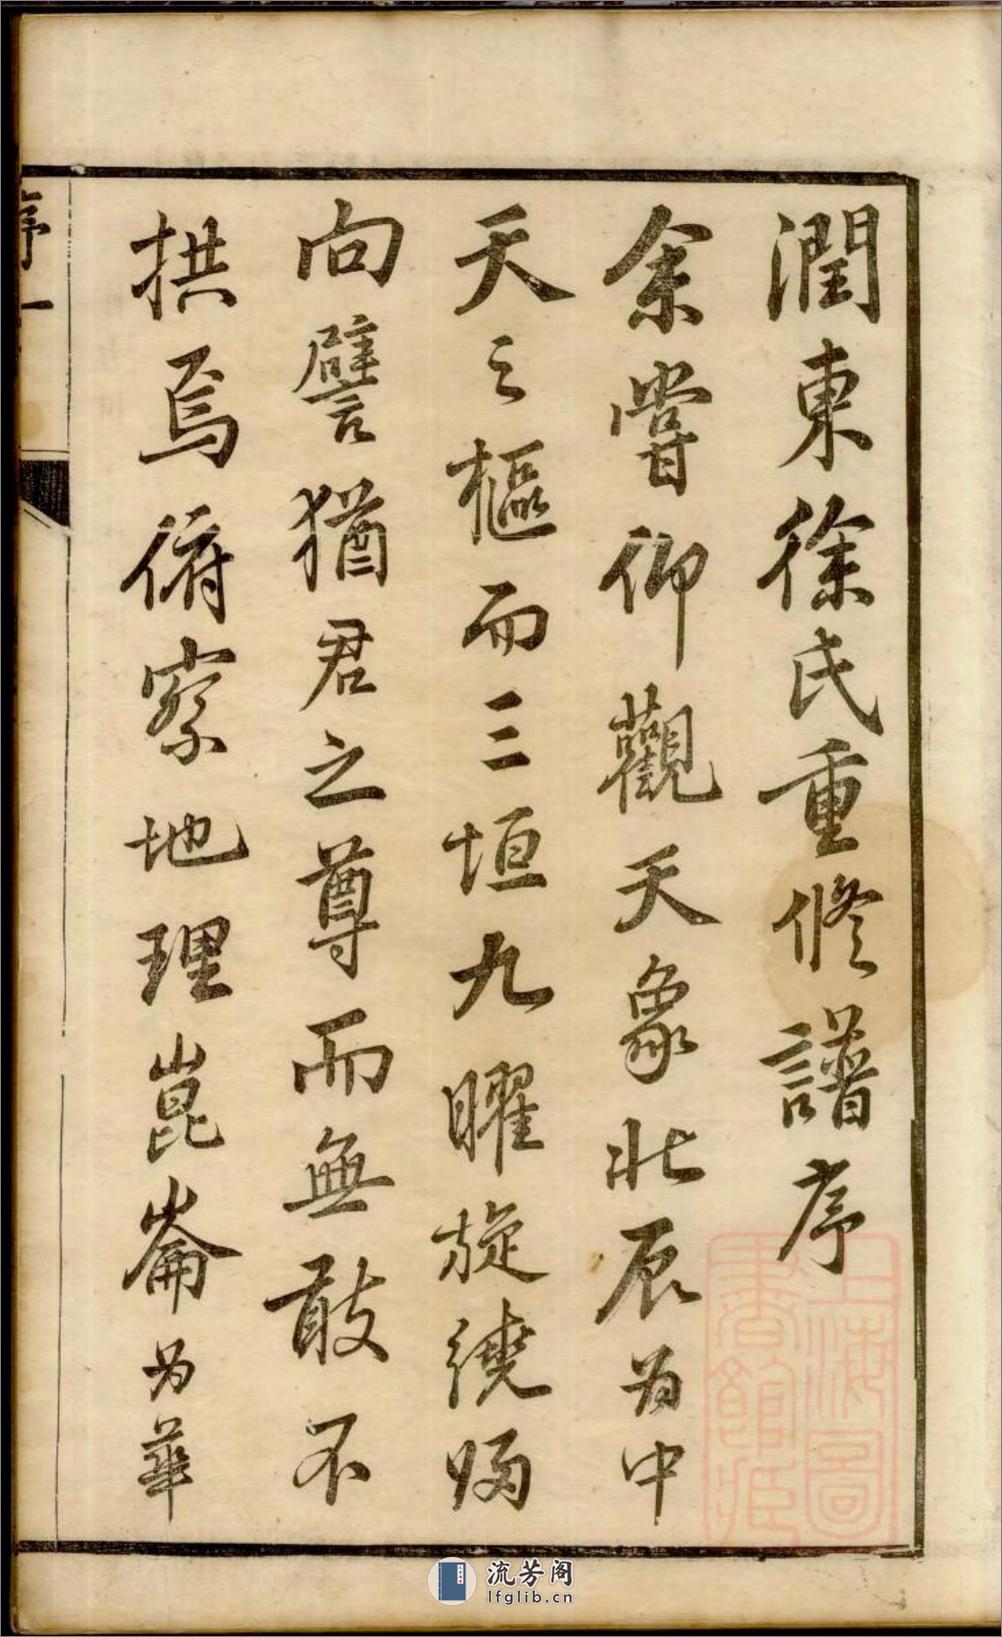 潤東徐氏重修譜序
余嘗仰觀天象北辰為中
天之樞而三垣九曜旋繞歸
向譬猶君之尊而無敢不
拱焉俯察地理崑崙為華
序一
上海圖書館藏
流芳阁
lfglib.cn